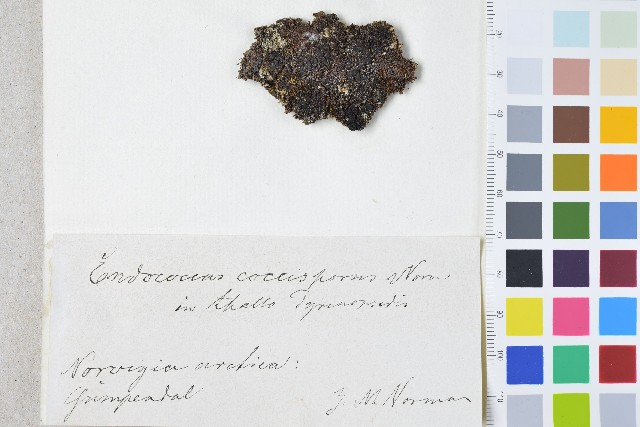 Endococcus coccisporus Norm.
in thallo
Norvegia arctica:
Gumpendal
J. M. Norman